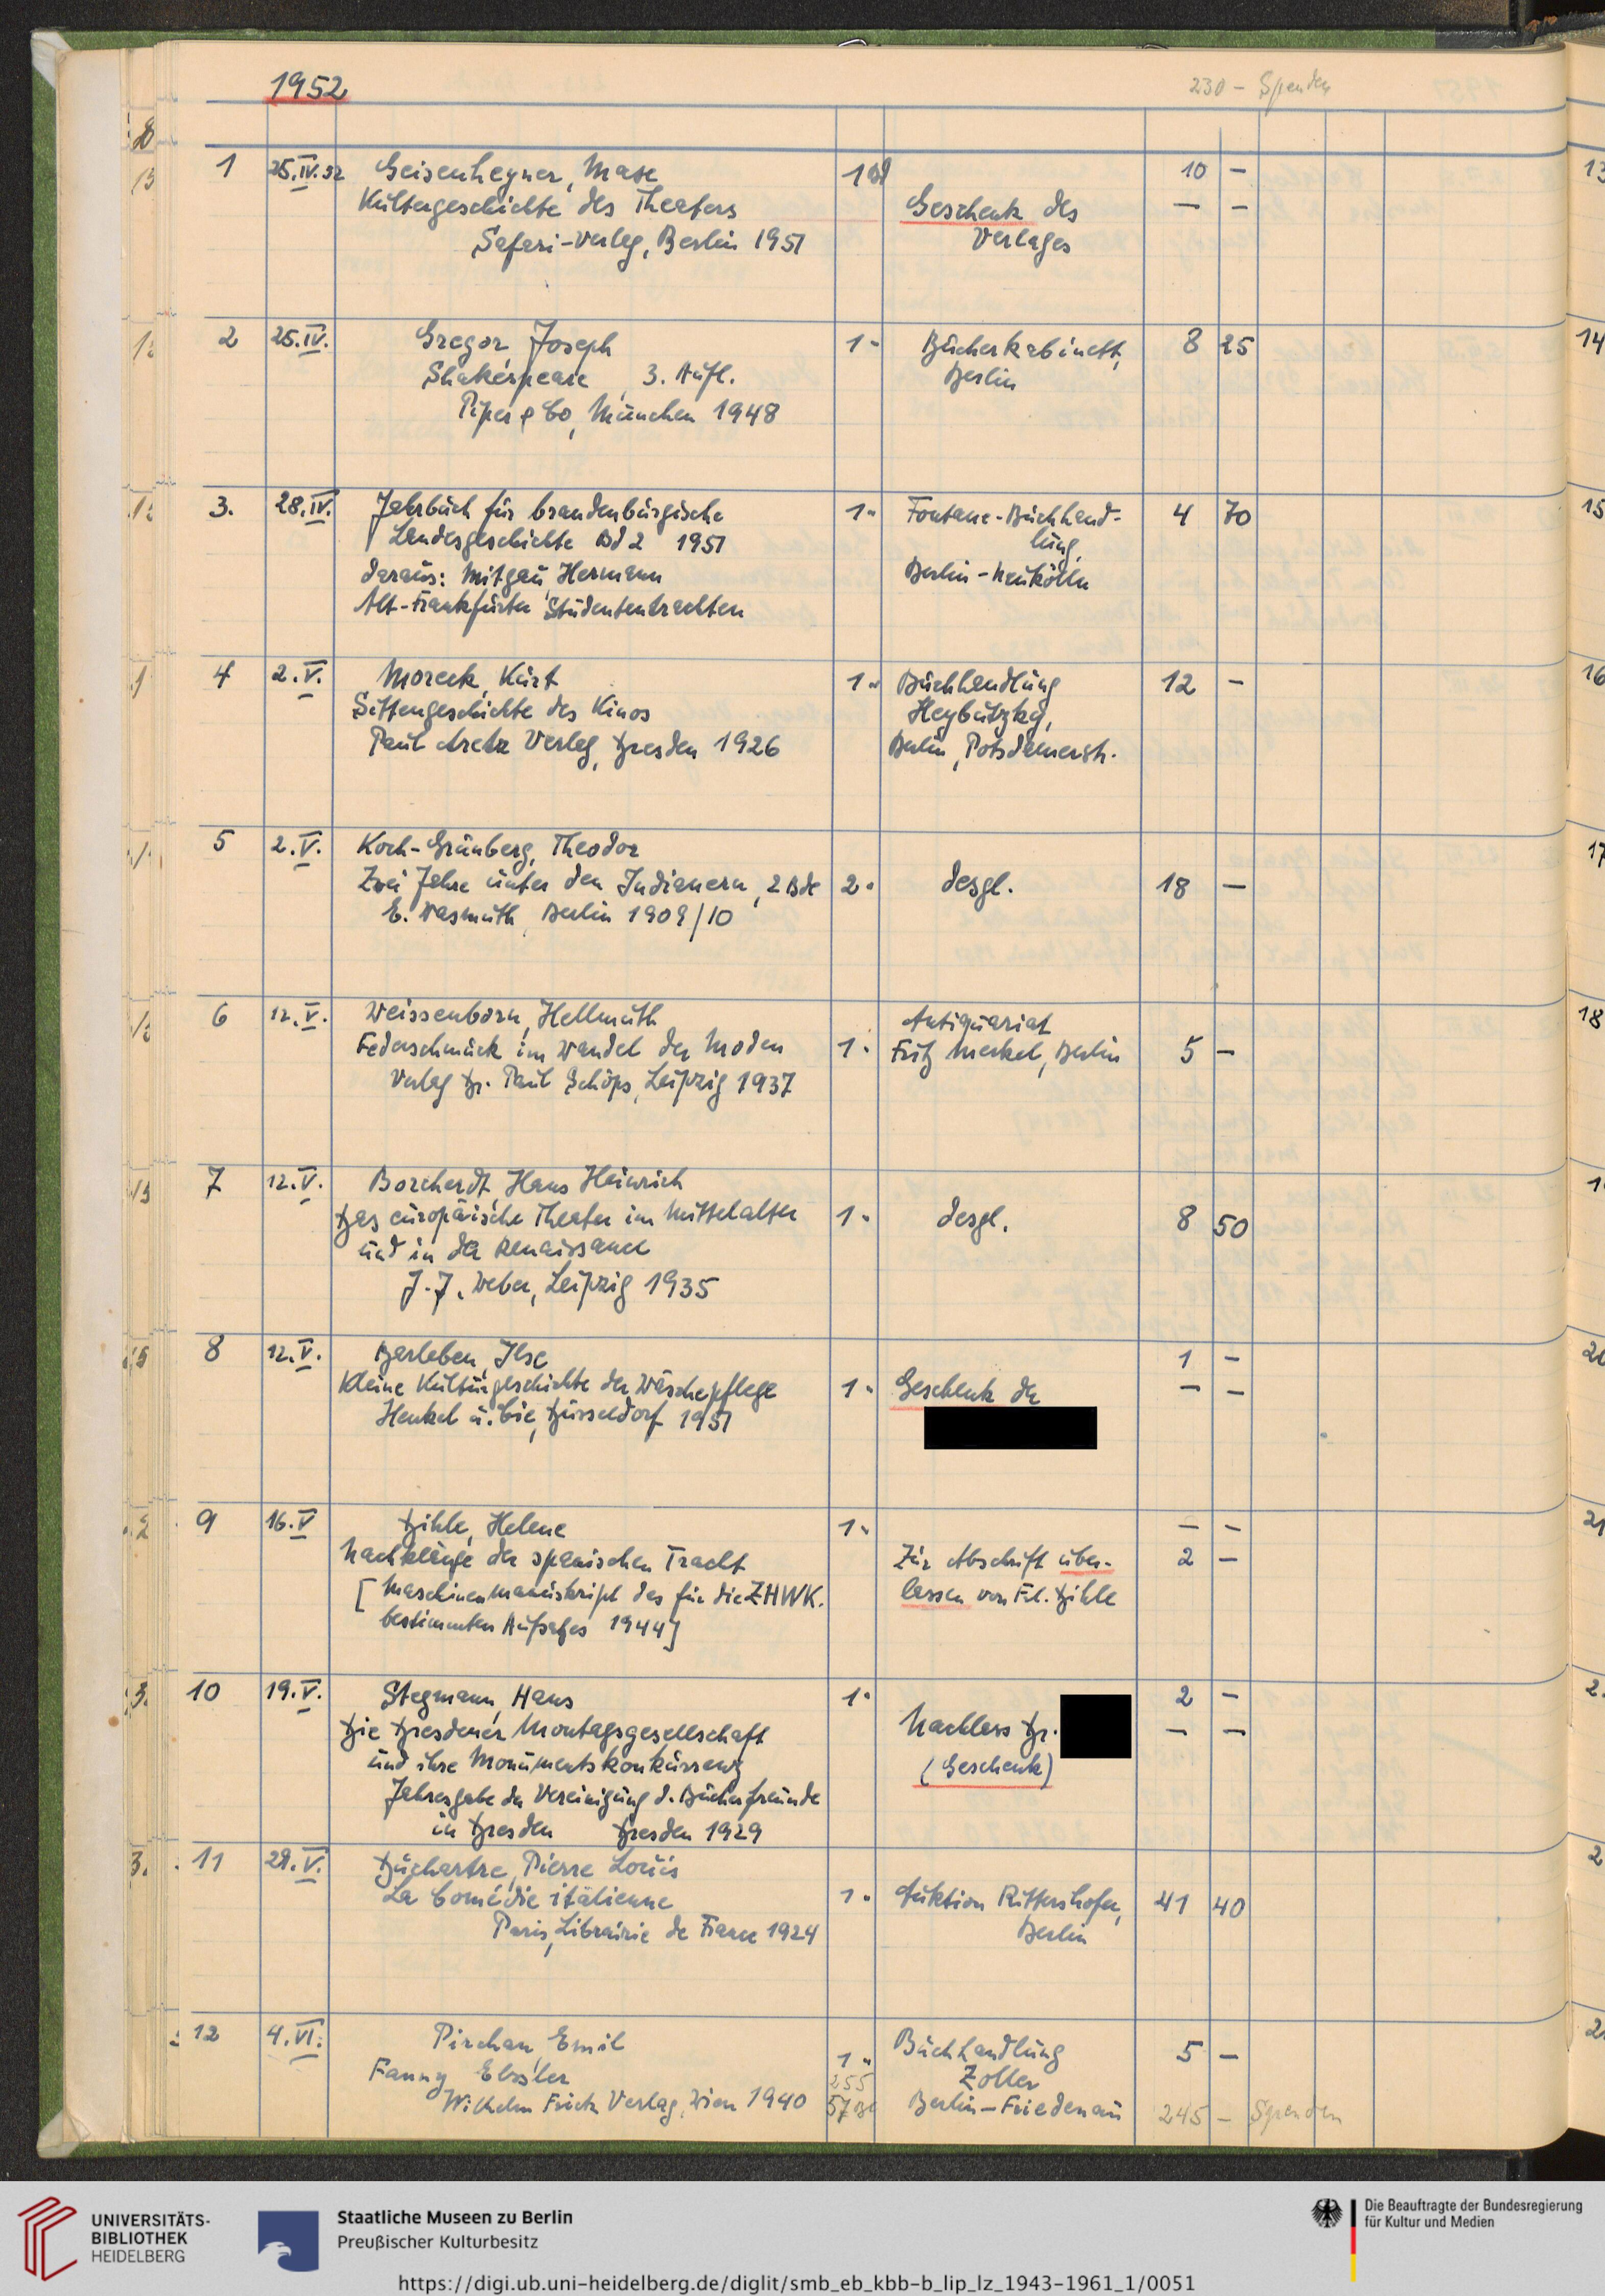 1952
230 - Spenden
1 25.IV.52 Geisenheyner, Max 1 Bd 10 —
Kulturgeschichte des Theaters Geschenk des — —
Safari-Verlag, Berlin 1951 Verlages
2 25.IV. Gregor, Joseph 1 " Bücherkabinett, 8 25
Shakespeare, 3. Aufl. Berlin
Piper & Co, München 1948
3. 28.IV. Jahrbuch für brandenburgische 1 " Fontane-Buchhand- 4 70
Landesgeschichte Bd 2 1951 lung,
daraus: Mitgau, Hermann Berlin-Neukölln
Alt-Frankfurter Studententrachten
4 2.V. Moreck, Kurt 1 " Buchhandlung 12 —
Sittengeschichte des Kinos Heybutzky,
Paul Aretz Verlag, Dresden 1926 Berlin, Potsdamerstr.
5 2.V. Koch-Grünberg, Theodor
Zwei Jahre unter den Indianern, 2 Bde 2 " desgl. 18 —
E. Wasmuth, Berlin 1909/10
6 12.V. Weissenborn, Hellmuth Antiquariat
Federschmuck im Wandel der Moden 1 " Fritz Merkel, Berlin 5 —
Verlag Dr. Paul Schöps, Leipzig 1937
7 12.V. Borcherdt, Hans Heinrich
Das europäische Theater im Mittelalter 1 " desgl. 8 50
und in der Renaissance
J. J. Weber, Leipzig 1935
8 12.V. Barleben, Ilse 1 —
Kleine Kulturgeschichte der Wäschepflege 1 " Geschenk der — —
Henkel u. Cie, Düsseldorf 1951
9 16.V Dihle, Helene 1 " — —
Nachklänge der spanischen Tracht Zur Abschrift über- 2 —
[Maschinenmanuskript des für die ZHWK. lassen von Frl. Dihle
bestimmten Aufsatzes 1944]
10 19.V. Stegmann, Hans 1 " 2 —
Die Dresdener Montagsgesellschaft Nachlass Dr. — —
und ihre Monumentskonkurrenz (Geschenk)
Jahresgabe der Vereinigung d. Bücherfreunde
in Dresden Dresden 1929
11 28.V. Duchartre, Pierre Louis
La Comédie italienne 1 " Auktion Rittershofer, 41 40
Paris, Librairie de France 1924 Berlin
12 4.VI. Pirchan, Emil Buchhandlung 5 —
Fanny Elssler 1 " Zoller
Wilhelm Frick Verlag, Wien 1940 Berlin-Friedenau
255
57 Bd 245 - Spenden
UNIVERSITÄTS-
BIBLIOTHEK
HEIDELBERG
Staatliche Museen zu Berlin
Preußischer Kulturbesitz
Die Beauftragte der Bundesregierung
für Kultur und Medien
https://digi.ub.uni-heidelberg.de/diglit/smb_eb_kbb-b_lip_lz_1943-1961_1/0051